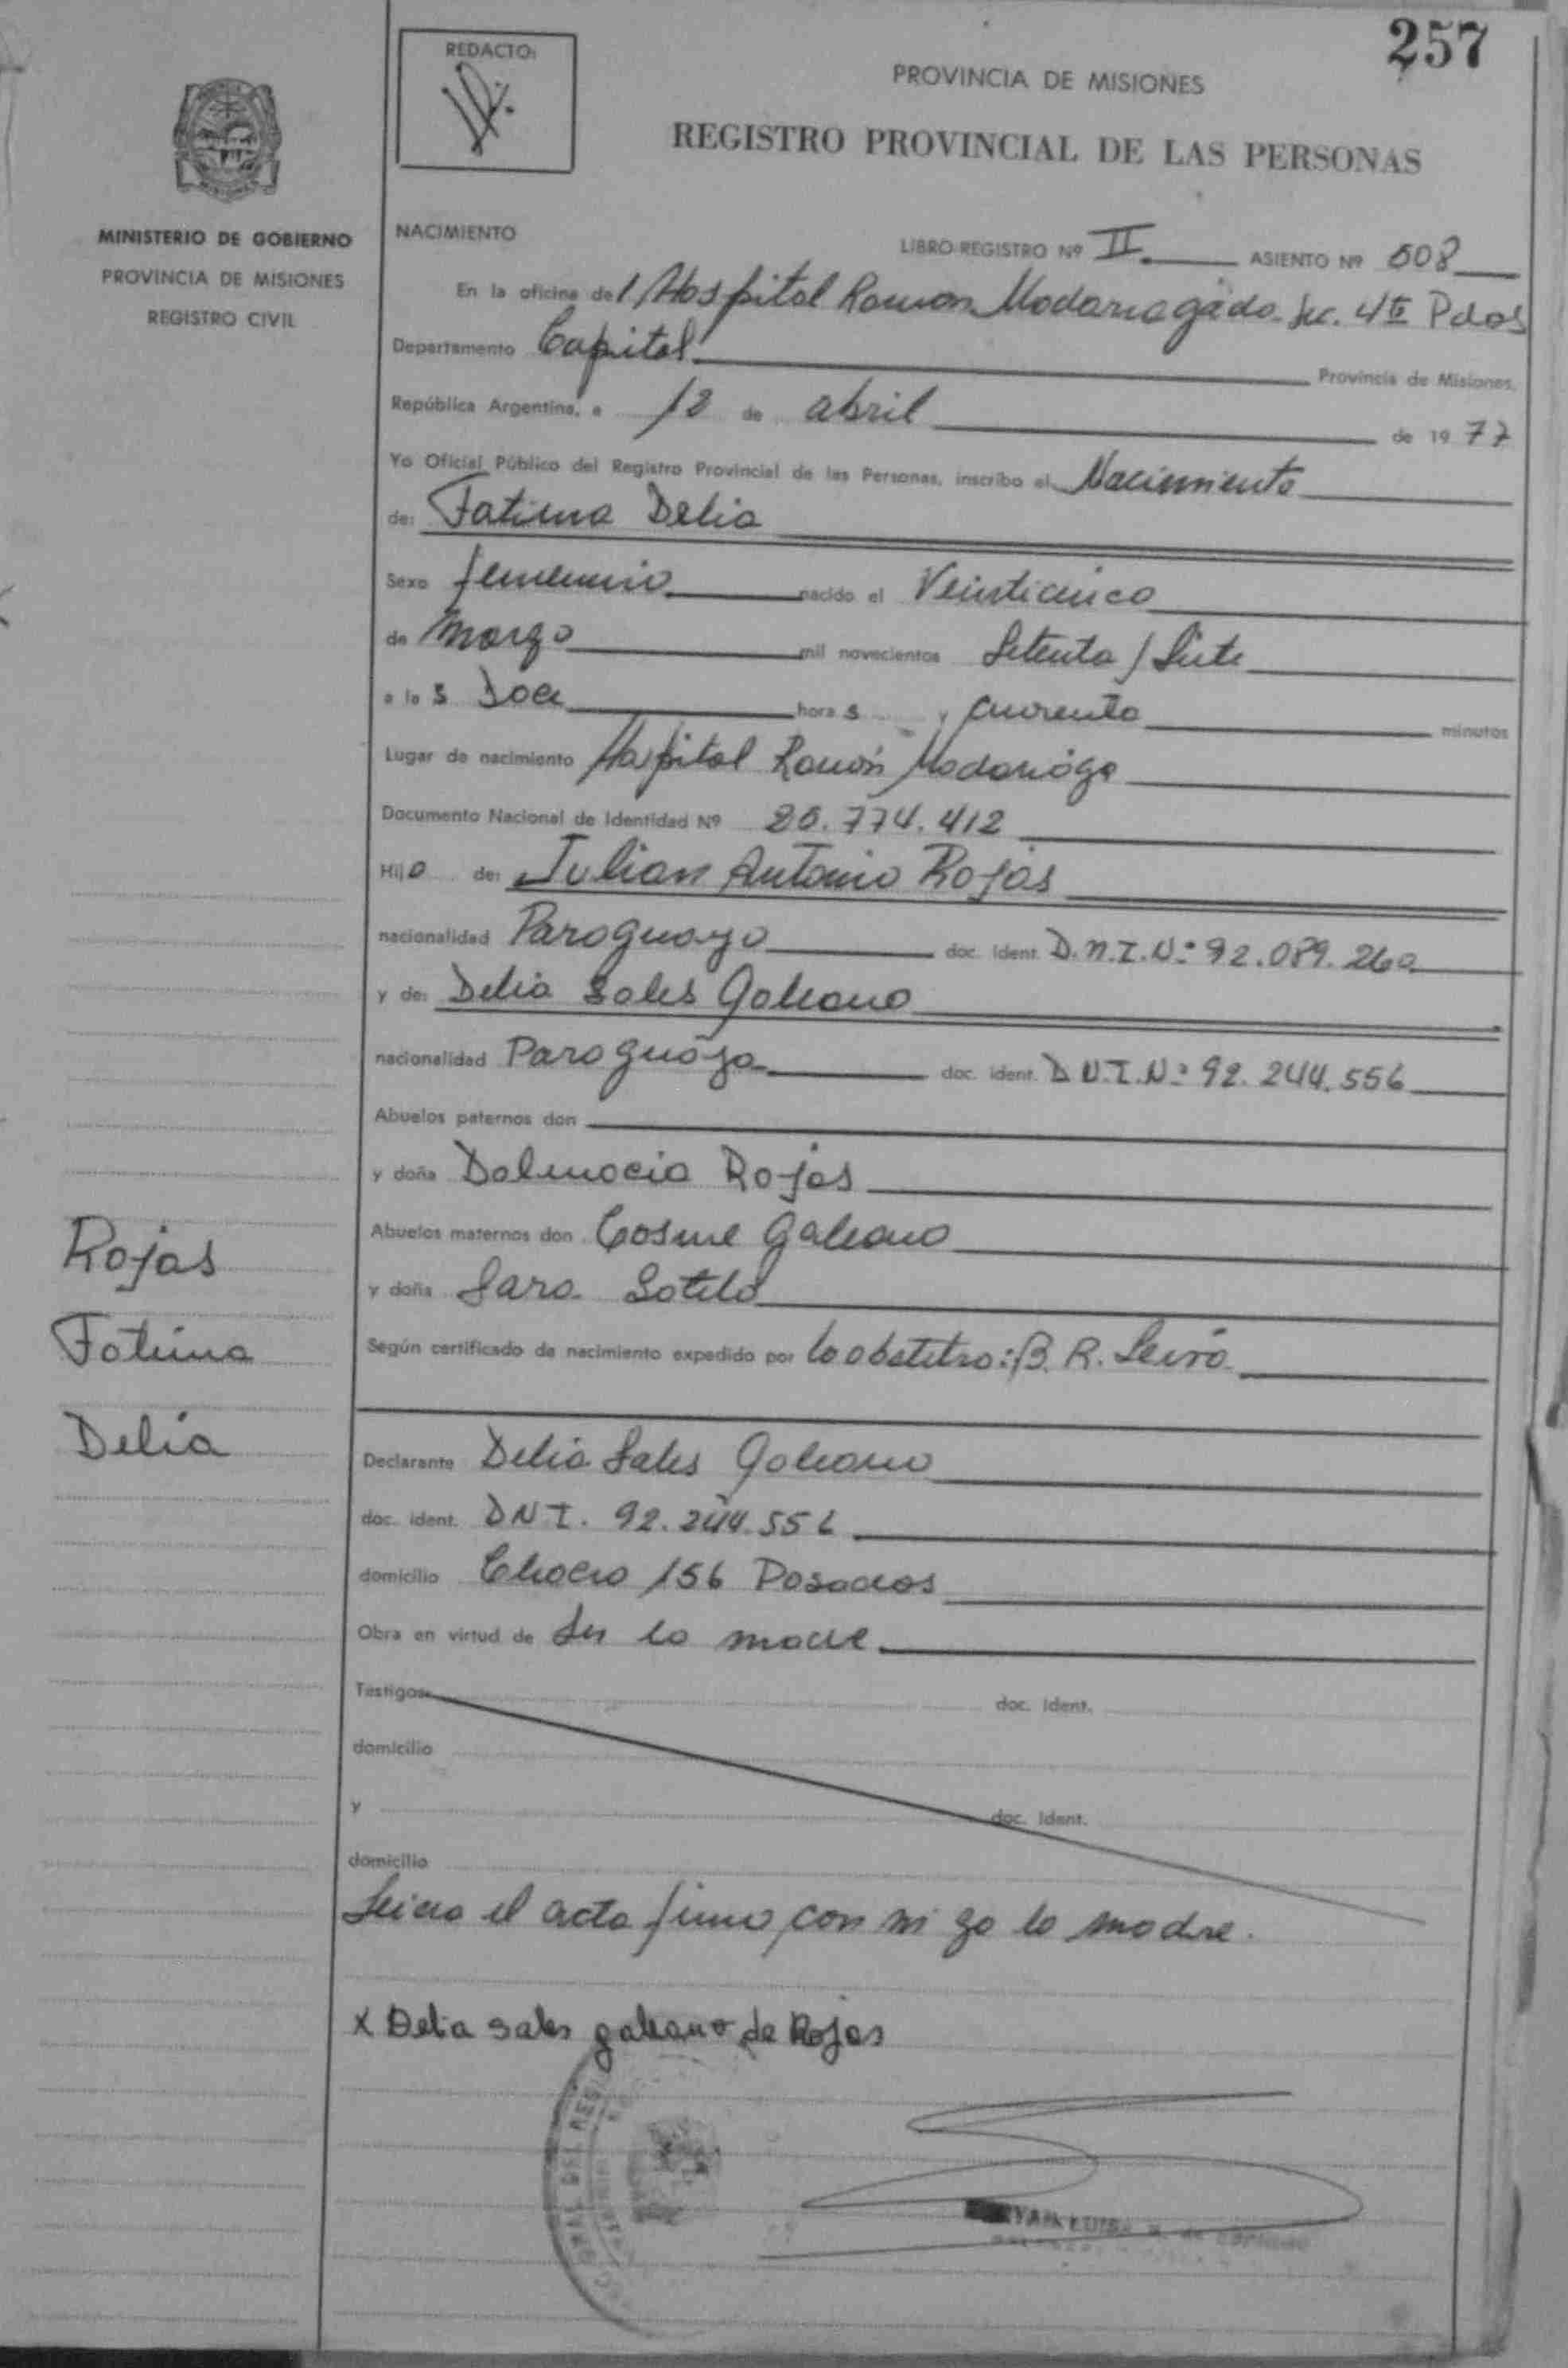 257
REDACTO:
PROVINCIA DE MISIONES
REGISTRO PROVINCIAL DE LAS PERSONAS
MINISTERIO DE GOBIERNO
PROVINCIA DE MISIONES
REGISTRO CIVIL
NACIMIENTO
LIBRO REGISTRO Nº II. ASIENTO Nº 508
En la oficina del Hospital Ramon Madariaga da. Sec. 4ta Pdas
Departamento Capital Provincia de Misiones,
República Argentina, a 12 de abril de 1977
Yo Oficial Público del Registro Provincial de las Personas, inscribo el Nacimiento
de: Fatima Delia
Sexo femenino nacido el Veinticinco
de Marzo mil novecientos Setenta / Siete
a las Doce horas y cuarenta minutos
Lugar de nacimiento Hospital Ramón Madariaga
Documento Nacional de Identidad Nº 25.774.412
Hija de: Julian Antonio Rojas
nacionalidad Paraguayo doc. Ident. D.N.I.N: 92.089.260
y de: Delia Sales Galeano
nacionalidad Paraguaya doc. ident. D.N.I.N: 92.244.556
Abuelos paternos don
y doña Dalmacia Rojas
Abuelos maternos don Cosme Galeano
y doña Sara Sotelo
Según certificado de nacimiento expedido por la obstetra: B. R. Leiva
Rojas
Fatima
Delia
Declarante Delia Sales Galeano
doc. ident. DNI. 92.244.556
domicilio Chaco 156 Posadas
Obra en virtud de Ser la madre
Testigos doc. Ident.
domicilio
y doc. Ident.
domicilio
Leida el acta firma con mi go la madre.
x Delia sales galeano de Rojas